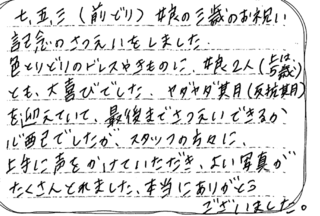 七五三(前どり)娘の三歳のお祝い
記念のさつえいをしました。
色とりどりのドレスやきものに、娘2人(上は5歳)
とも、大喜びでした。ヤダヤダ期(反抗期)
を迎えていて、最後までさつえいできるか
心配でしたが、スタッフの方々に、
上手に声をかけていただき、よい写真が
たくさんとれました。本当にありがとう
ございました。